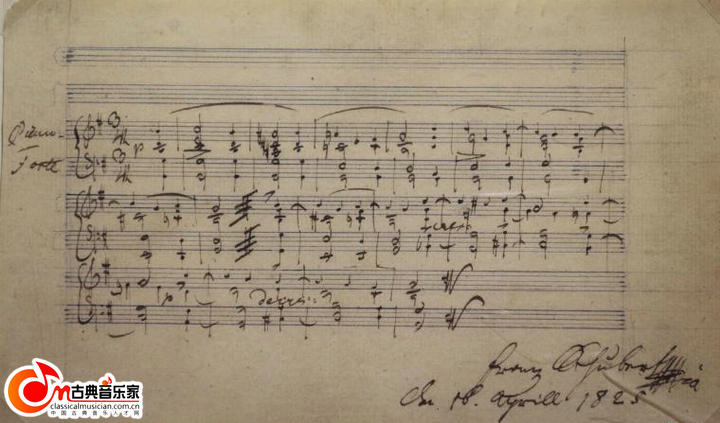 Piano-
Forte
3
4
3
4
p
cresc
p
decresc:
Franz Schubert mpia
Den 16. Aprill 1825
古典音乐家
classicalmusician.com.cn
中国古典音乐人才网